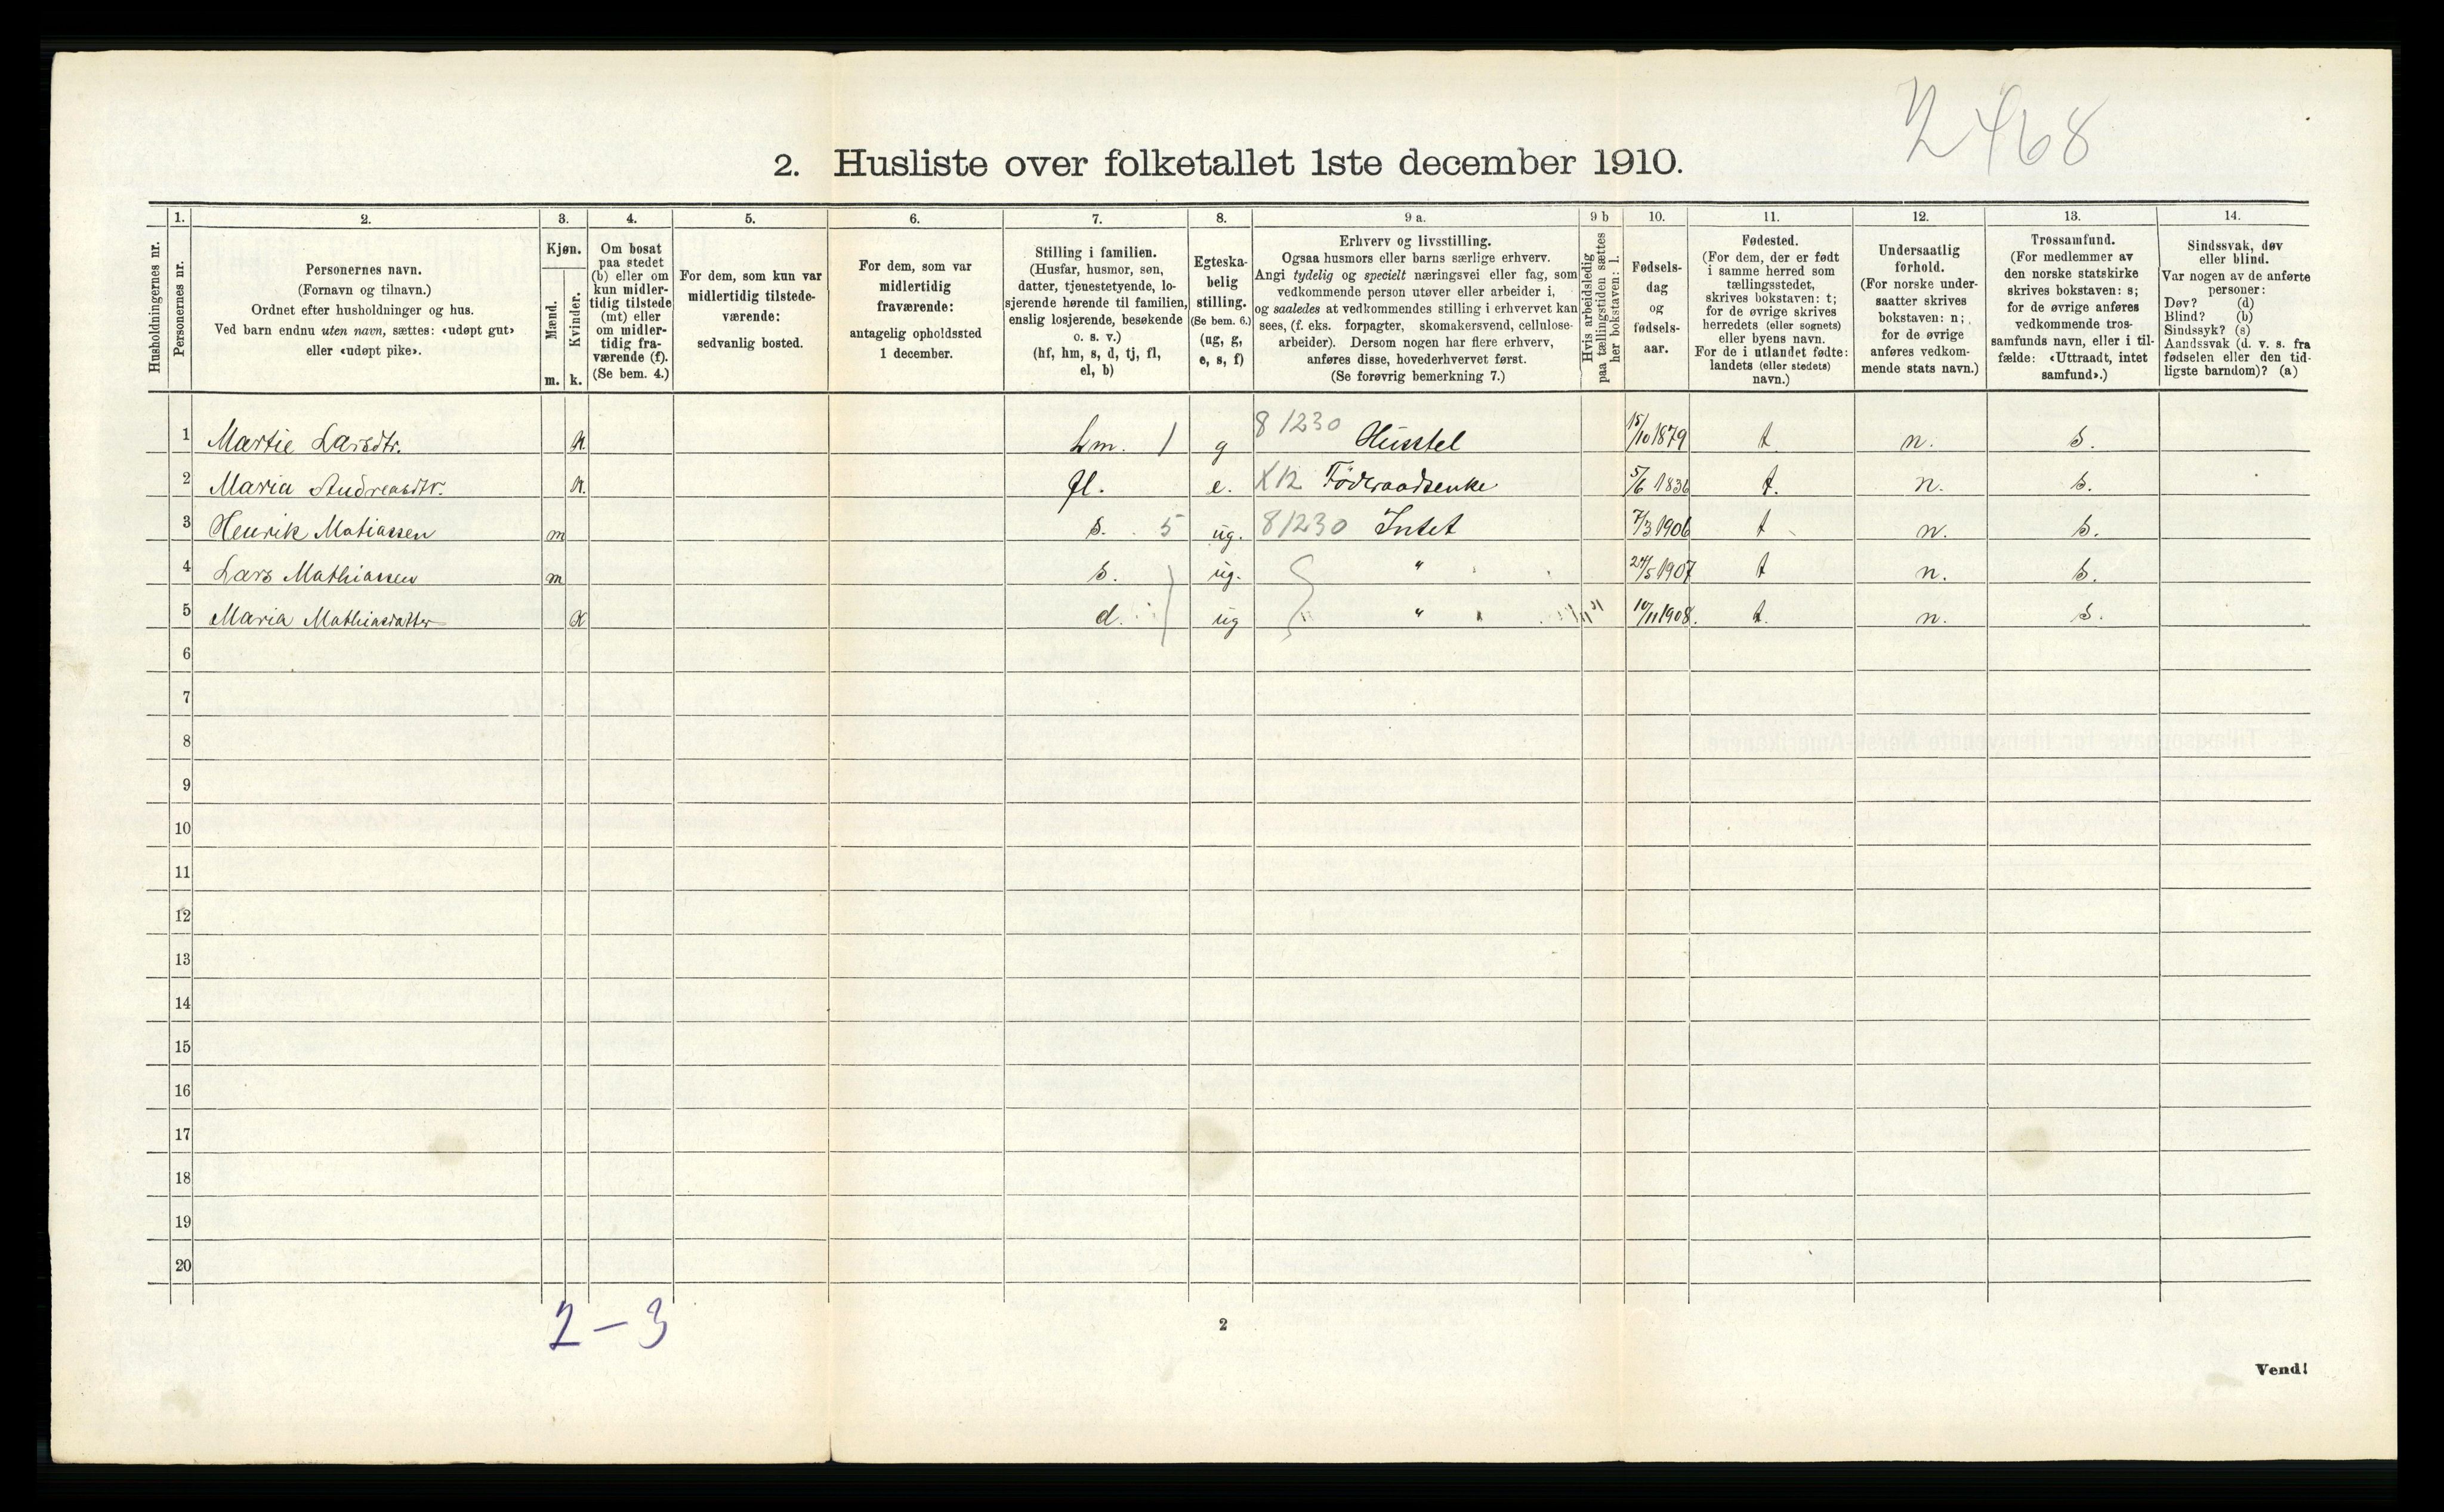 2468
2. Husliste over folketallet 1ste december 1910.
Husholdningernes nr.
1.
Personernes nr.
2.
Personernes navn.
(Fornavn og tilnavn.)
Ordnet efter husholdninger og hus.
Ved barn endnu uten navn, sættes: «udøpt gut»
eller «udøpt pike».
3.
Kjøn.
Mænd.
Kvinder.
m. k.
4.
Om bosat
paa stedet
(b) eller om
kun midler-
tidig tilstede
(mt) eller
om midler-
tidig fra-
værende (f).
(Se bem. 4.)
5.
For dem, som kun var
midlertidig tilstede-
værende:
sedvanlig bosted.
6.
For dem, som var
midlertidig
fraværende:
antagelig opholdssted
1 december.
7.
Stilling i familien.
(Husfar, husmor, søn,
datter, tjenestetyende, lo-
sjerende hørende til familien,
enslig losjerende, besøkende
o. s. v.)
(hf, hm, s, d, tj, fl,
el, b)
8.
Egteska-
belig
stilling.
(Se bem. 6.)
(ug, g,
e, s, f)
9 a.
Erhverv og livsstilling.
Ogsaa husmors eller barns særlige erhverv.
Angi tydelig og specielt næringsvei eller fag, som
vedkommende person utøver eller arbeider i,
og saaledes at vedkommendes stilling i erhvervet kan
sees, (f. eks. forpagter, skomakersvend, cellulose-
arbeider). Dersom nogen har flere erhverv,
anføres disse, hovederhvervet først.
(Se forøvrig bemerkning 7.)
9 b
Hvis arbeidsledig
paa tællingstiden sættes
her bokstaven: l.
10.
Fødsels-
dag
og
fødsels-
aar.
11.
Fødested.
(For dem, der er født
i samme herred som
tællingsstedet,
skrives bokstaven: t;
for de øvrige skrives
herredets (eller sognets)
eller byens navn.
For de i utlandet fødte:
landets (eller stedets)
navn.)
12.
Undersaatlig
forhold.
(For norske under-
saatter skrives
bokstaven: n;
for de øvrige
anføres vedkom-
mende stats navn.)
13.
Trossamfund.
(For medlemmer av
den norske statskirke
skrives bokstaven: s;
for de øvrige anføres
vedkommende tros-
samfunds navn, eller i til-
fælde: «Uttraadt, intet
samfund».)
14.
Sindssvak, døv
eller blind.
Var nogen av de anførte
personer:
Døv? (d)
Blind? (b)
Sindssyk? (s)
Aandssvak (d. v. s. fra
fødselen eller den tid-
ligste barndom)? (a)
1 Martie Larsdtr. k. hm. 1 g 8 1230 Husstel 15/10 1879 t n. s.
2 Maria Andreasdtr. k. fl. e. X12 Föderaadsenke 5/6 1836 t. n. s.
3 Henrik Matiassen m s. 5 ug. 81230 Intet 7/3 1906 t n. s.
4 Lars Mathiassen m s. ug. " 24/5 1907 t n. s.
5 Maria Mathiasdatter k d. ug " 10/11 1908. t. n. s.
6
7
8
9
10
11
12
13
14
15
16
17
18
19
20
2-3
2
Vend!